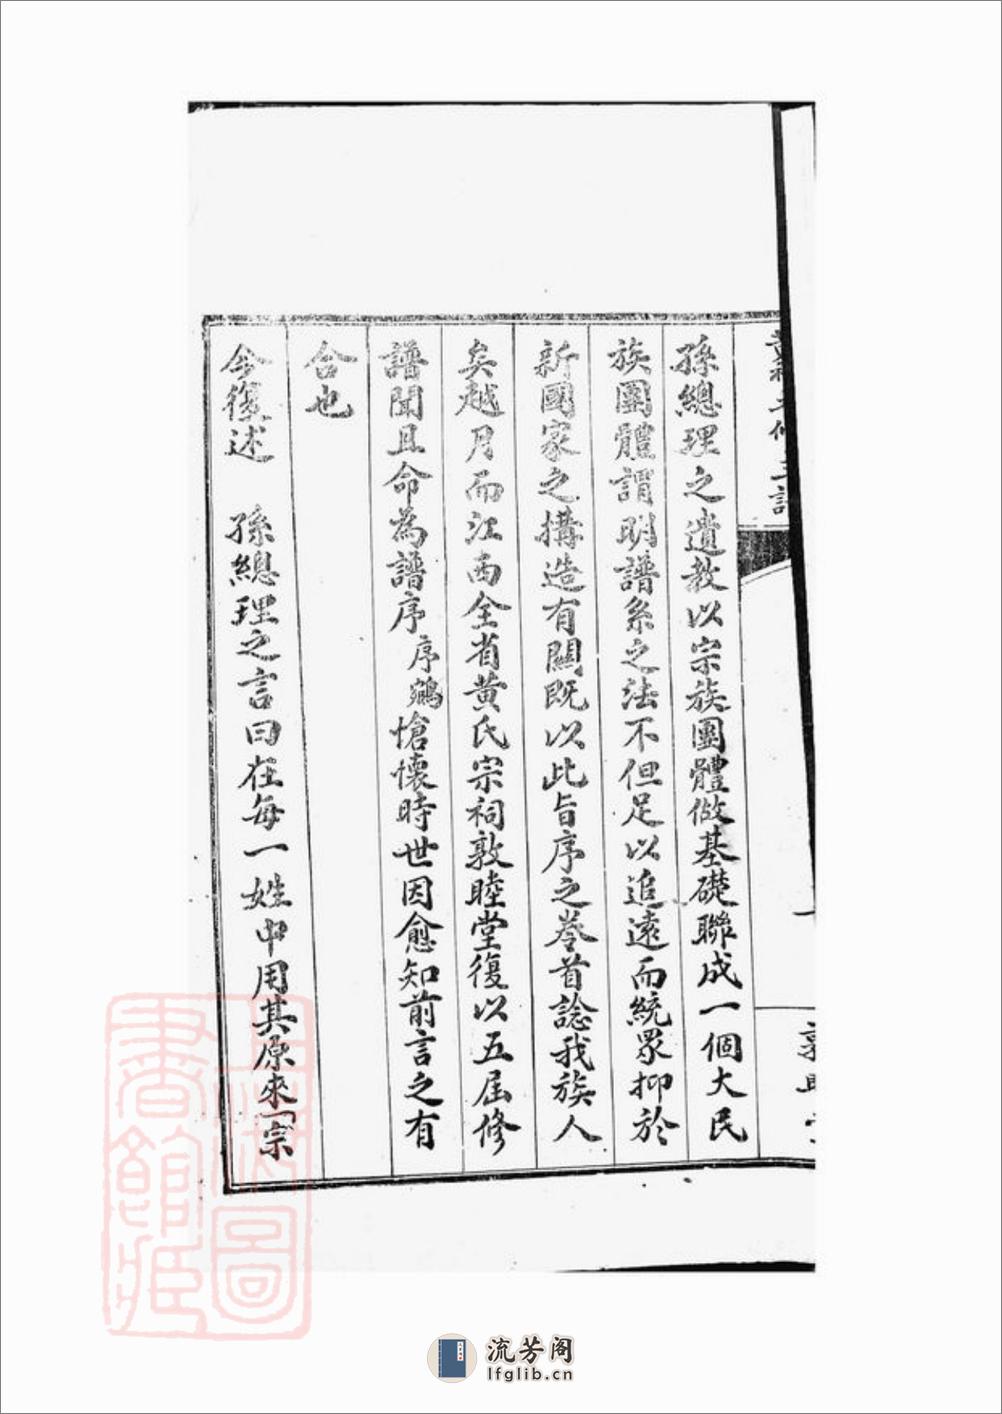 孫總理之遺教以宗族團體做基礎聯成一個大民
族團體謂明譜系之法不但足以追遠而統眾抑於
新國家之搆造有關既以此旨序之卷首諗我族人
矣越月而江西全省黄氏宗祠敦睦堂復以五届修
譜聞且命為譜序序鵷愴懷時世因愈知前言之有
合也
今復述　孫總理之言曰在每一姓中用其原來「宗
流芳阁
lfglib.cn